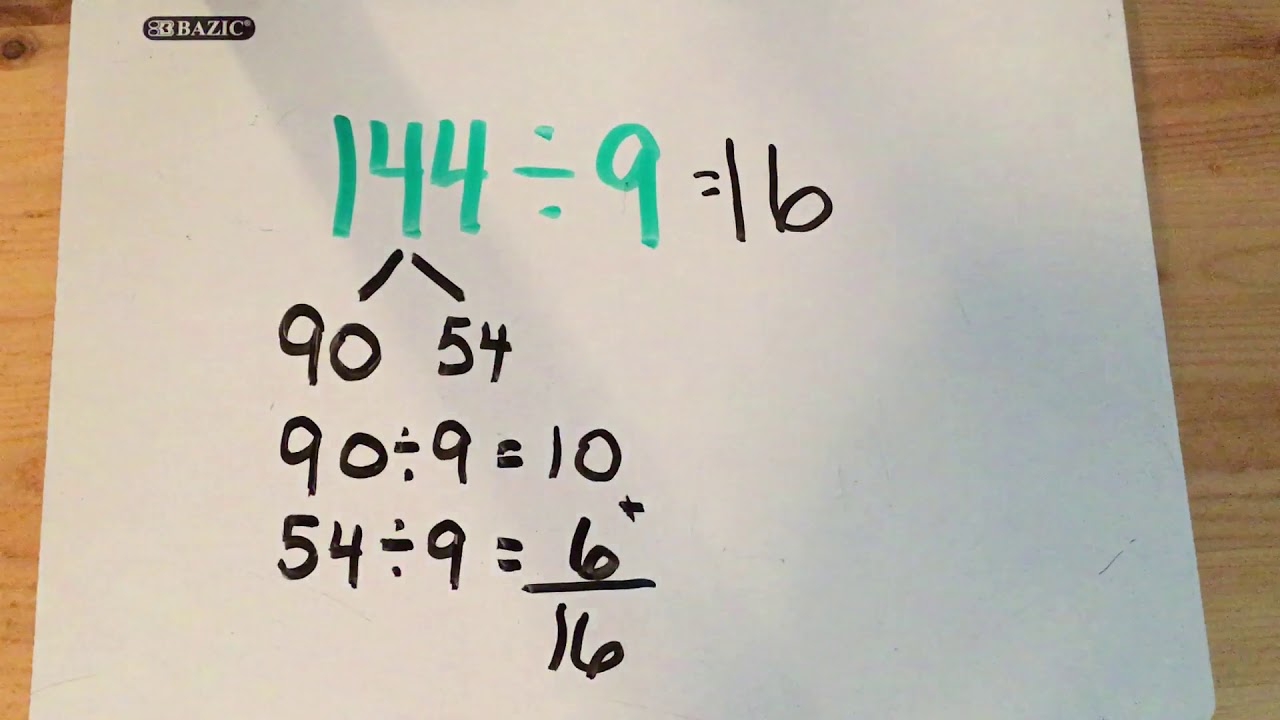 BAZIC®
144÷9=16
90 54
90÷9=10
+
54÷9=6
16